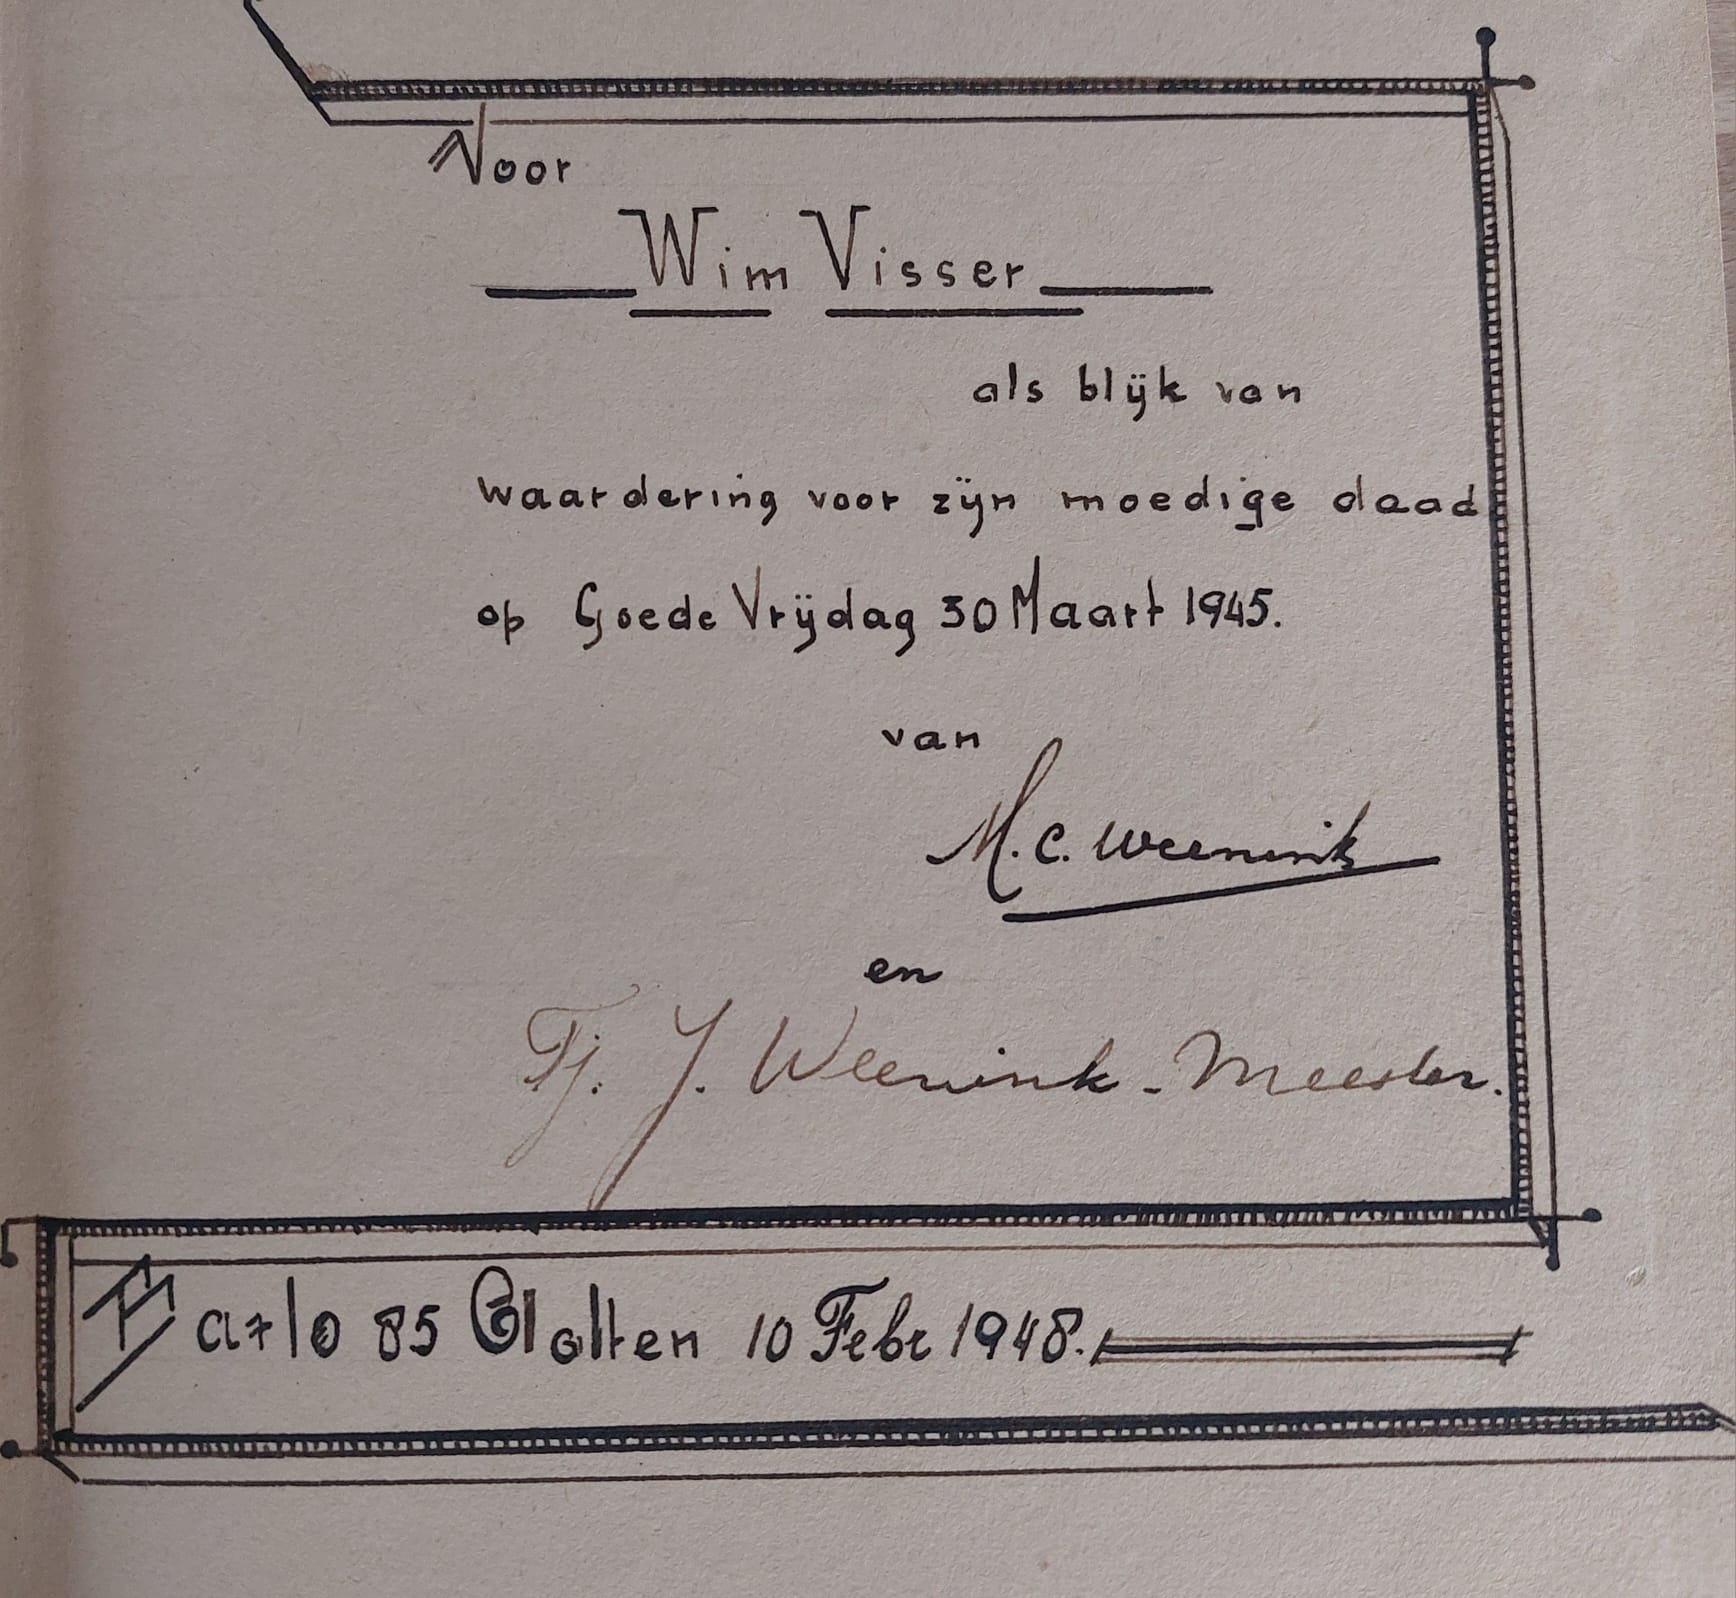 Voor
Wim Visser
als blijk van
waardering voor zijn moedige daad
op Goede Vrijdag 30 Maart 1945.
van
M. C. Weenink
en
Tj. J. Weenink - Meester.
Barlo 85 Aalten 10 Febr 1948.